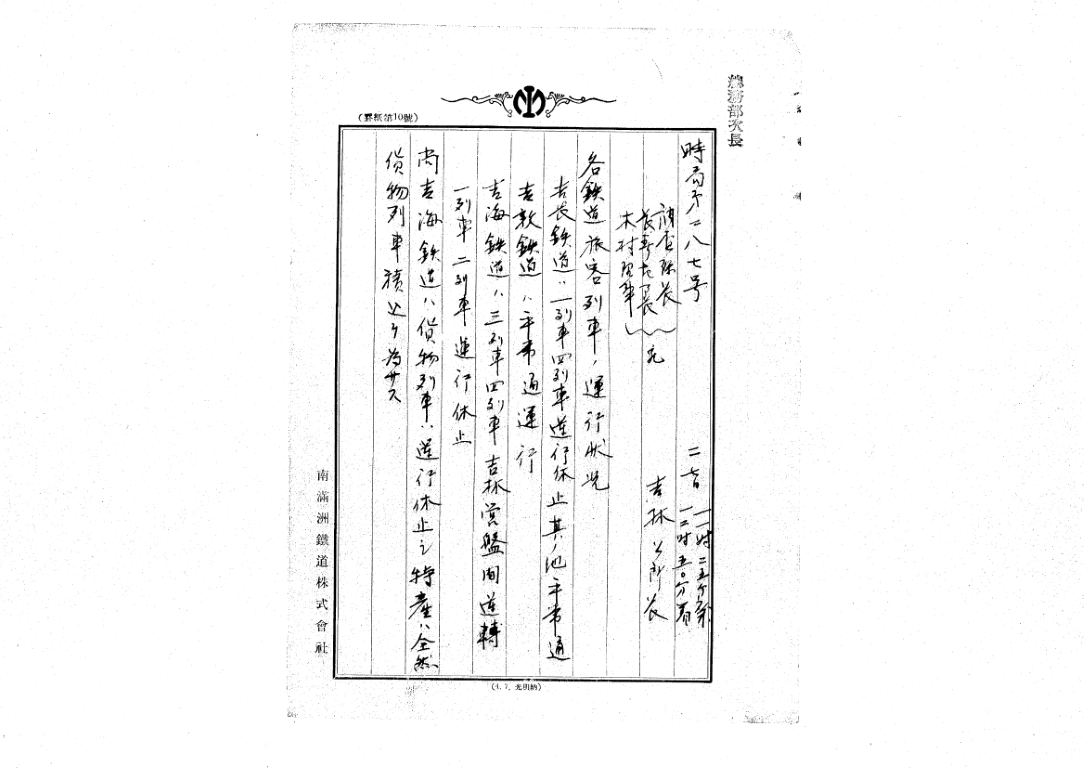 總務部次長
(罫紙第10號)
時局第二八七号
二十七日 一一時二五分発
一二時五〇分着
木村理事
宛
吉林公所長
各鉄道旅客列車ノ運行状況
吉長鉄道ハ一列車四列車運行休止其ノ他平常通
吉敦鉄道ハ平常通運行
吉海鉄道ハ三列車四列車吉林営盤間運轉
一列車二列車運行休止
尚吉海鉄道ハ貨物列車ハ運行休止シ特産ハ全然
貨物列車積込ヲ為サス
南滿洲鐵道株式會社
(4. 7. 光明納)